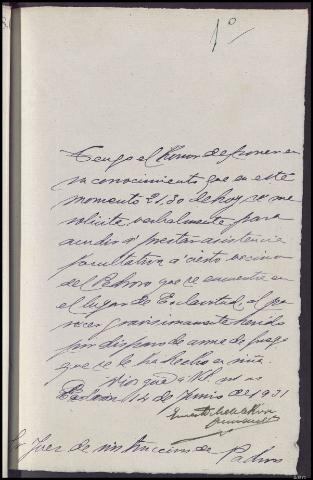 1º
Tengo el honor de poner en
su conocimiento que en este
momento 21.30 de hoy se me
solicita verbalmente para
acudir a prestar asistencia
facultativa a cierto vecino
de Padron que se encuentra en
el lugar de Esclavitud, al pa
recer gravisimamente herido
por disparo de arma de fuego
que se le ha hecho en riña.
Dios gue a Vd. ms as
Padron 14 de Junio de 1931
Sr Juez de instruccion de Padron